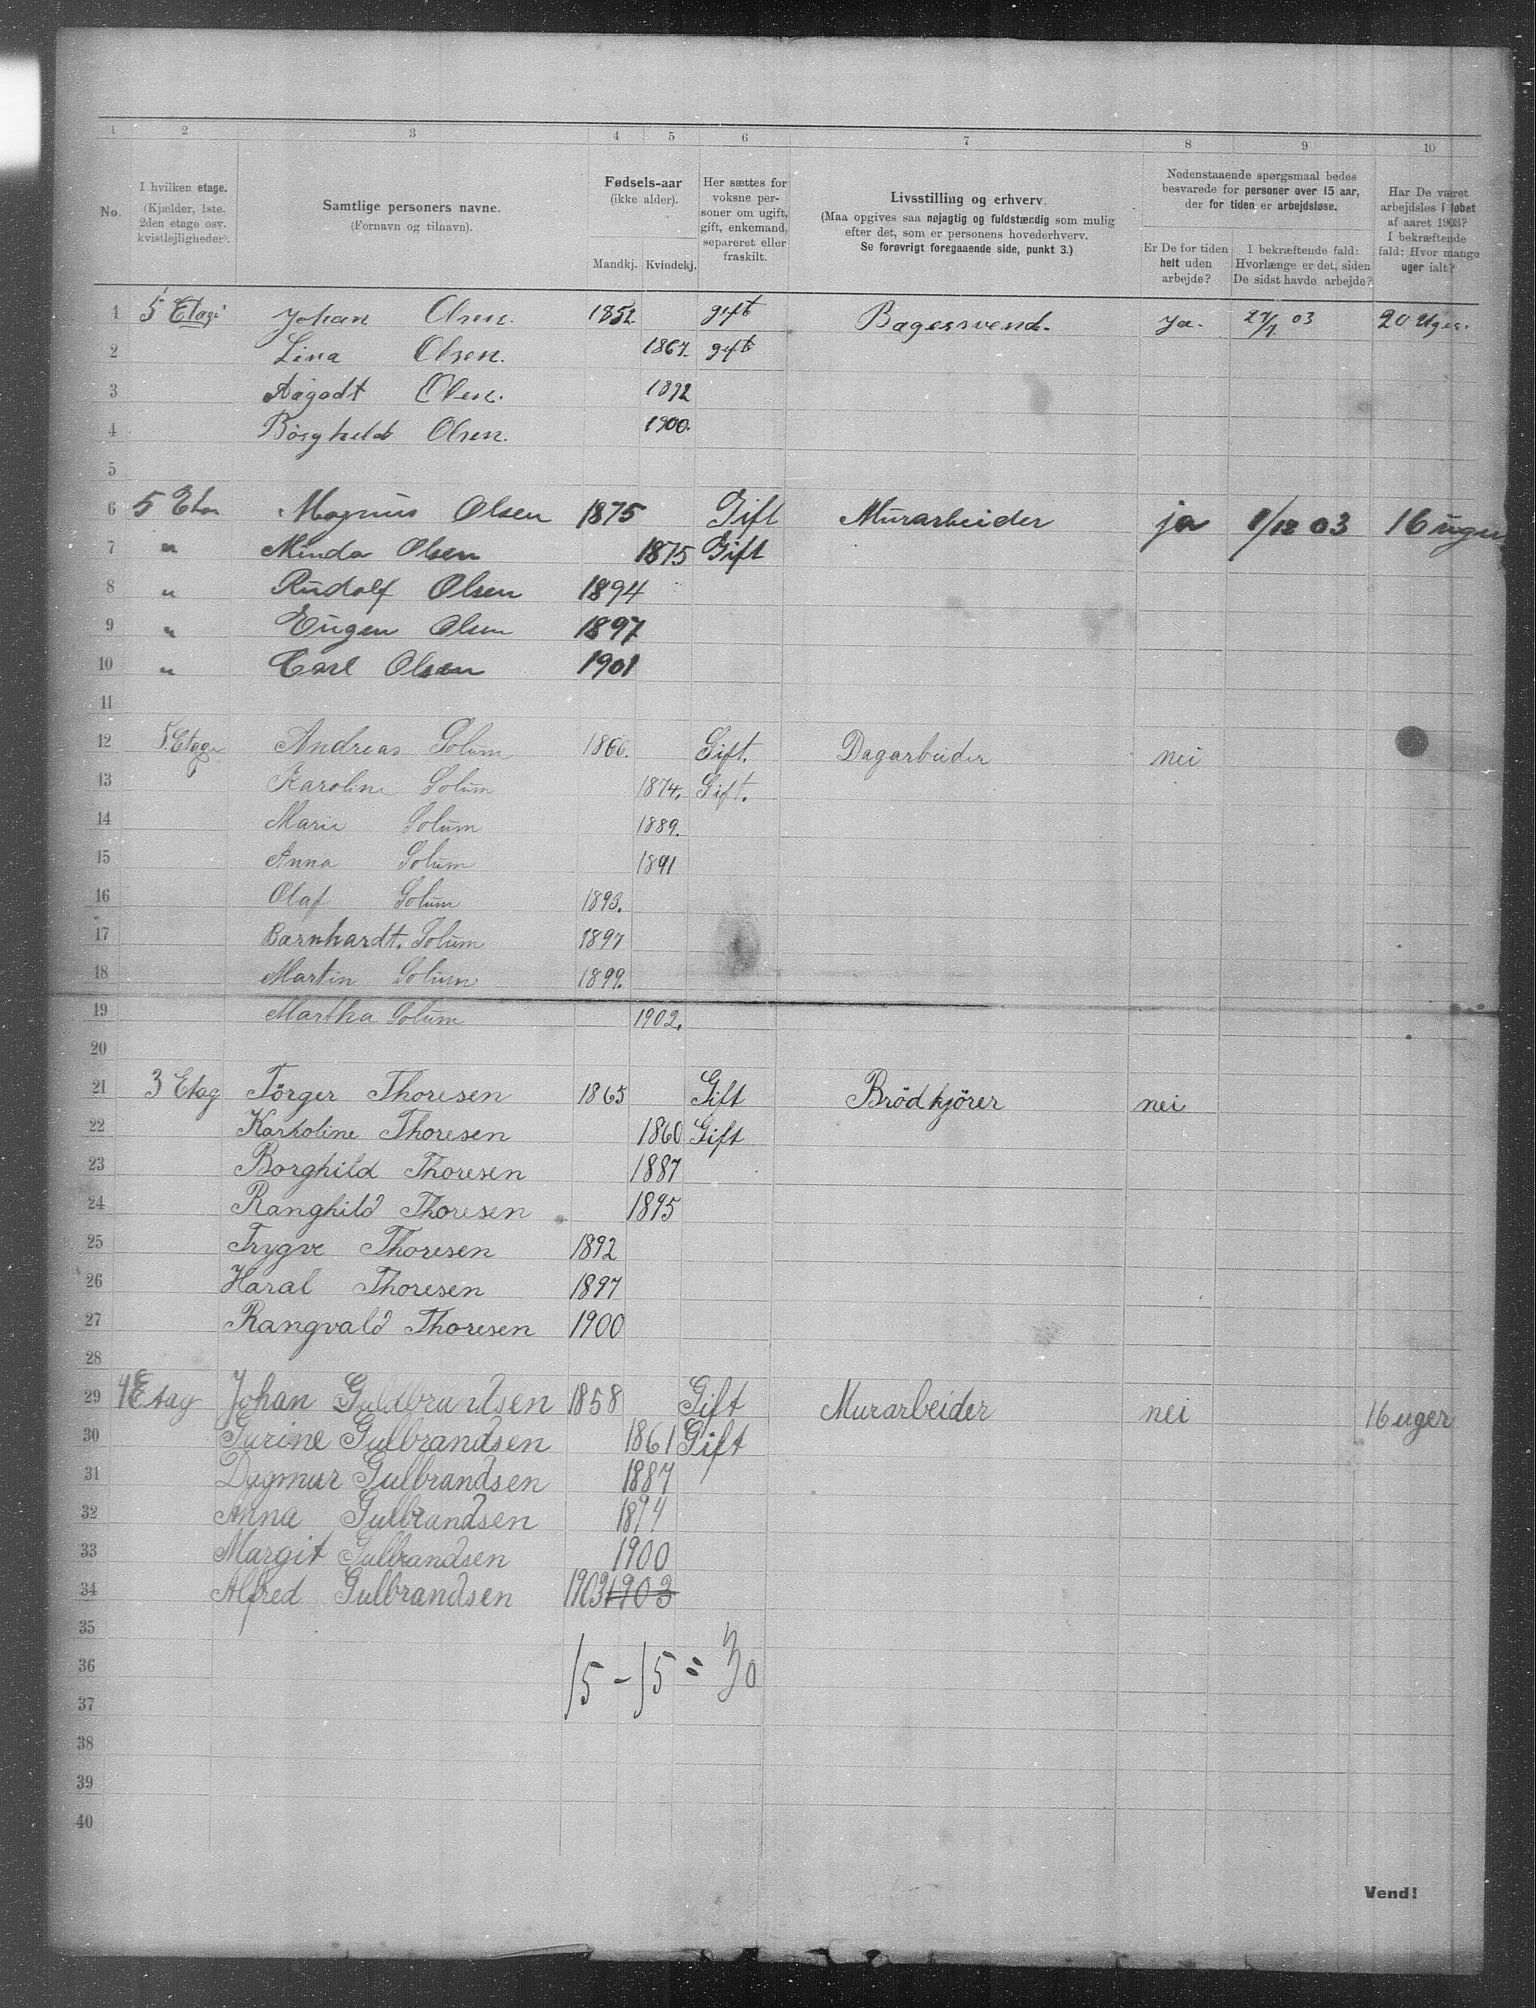 1 2 3 4 5 6 7 8 9 10
No.
I hvilken etage. (Kjælder, 1ste. 2den etage osv. kvistlejligheder).
Samtlige personers navne. (Fornavn og tilnavn).
Fødsels-aar (ikke alder). Mandkj. Kvindekj.
Her sættes for voksne personer om ugift, gift, enkemand, separeret eller fraskilt.
Livsstilling og erhverv. (Maa opgives saa nøjagtig og fuldstændig som mulig efter det, som er personens hovederhverv. Se forøvrigt foregaaende side, punkt 3.)
Nedenstaaende spørgsmaal bedes besvarede for personer over 15 aar, der for tiden er arbejdsløse.
Er De for tiden helt uden arbejde?
I bekræftende fald: Hvorlænge er det, siden De sidst havde arbejde?
Har De været arbejdsløs i løbet af aaret 1903? I bekræftende fald: Hvor mange uger ialt?
1 5 Etage Johan Olsen. 1852 gift Bagersvend. Ja. 03 20 Uger.
2 Lina Olsen. 1867. gift
3 Aagodt Olsen. 1892
4 Borghild Olsen. 1900.
5
6 5 Etag Magnus Olsen 1875 Gift Murarbeider ja 1/12 03 16 uger
7 " Minda Olsen 1875 Gift
8 " Rudolf Olsen 1894
9 " Eugen Olsen 1897
10 " Carl Olsen 1901
11
12 5. Etage Andreas Solum 1866. Gift. Dagarbeider nei
13 Karoline Solum 1874. Gift.
14 Marie Solum 1889.
15 Anna Solum 1891
16 Olaf Solum 1893.
17 Barnhardt. Solum 1897
18 Martin Solum 1899.
19 Martha Solum 1902.
20
21 3 Etag Törger Thoresen 1865 Gift Brödkjörer nei
22 Karholine Thoresen 1860 Gift
23 Borghild Thoresen 1887
24 Ranghild Thoresen 1895
25 Trygve Thoresen 1892
26 Haral Thoresen 1897
27 Rangvald Thoresen 1900
28
29 4 Etag Johan Guldbrandsen 1858 Gift Murarbeider nei 16 uger
30 Gurine Gulbrandsen 1861 Gift
31 Dagmar Gulbrandsen 1887
32 Anna Gulbrandsen 1894
33 Margit Gulbrandsen 1900
34 Alfred Gulbrandsen 1903 1903
35
36 15 - 15 = 30
37
38
39
40
Vend!